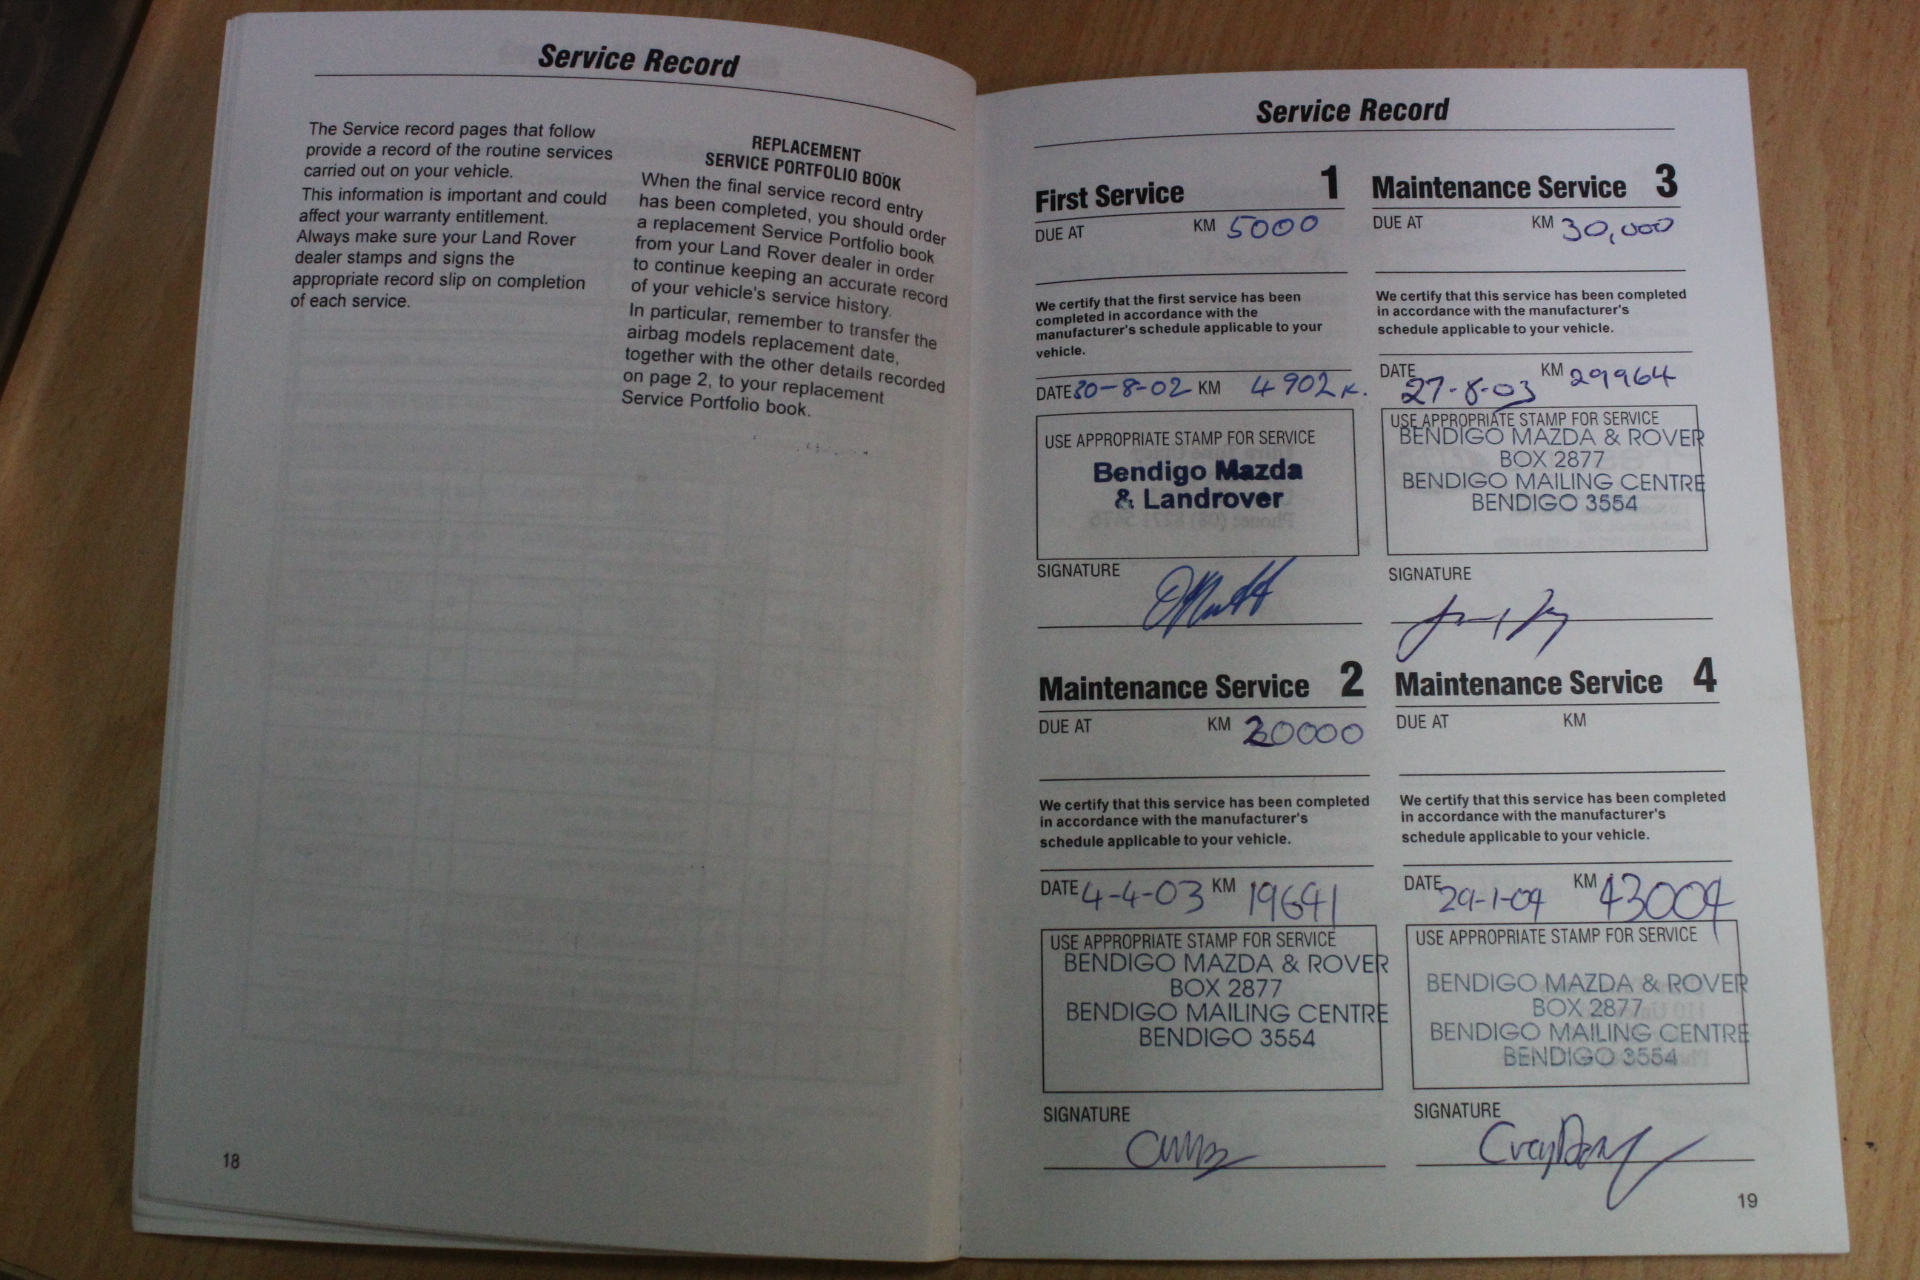 Service Record
The Service record pages that follow
provide a record of the routine services
carried out on your vehicle.
This information is important and could
affect your warranty entitlement.
Always make sure your Land Rover
dealer stamps and signs the
appropriate record slip on completion
of each service.
REPLACEMENT
SERVICE PORTFOLIO BOOK
When the final service record entry
has been completed, you should order
a replacement Service Portfolio book
from your Land Rover dealer in order
to continue keeping an accurate record
of your vehicle's service history.
In particular, remember to transfer the
airbag models replacement date,
together with the other details recorded
on page 2, to your replacement
Service Portfolio book.
18
Service Record
First Service 1
DUE AT KM 5000
We certify that the first service has been
completed in accordance with the
manufacturer's schedule applicable to your
vehicle.
DATE 30-8-02 KM 4902 K.
USE APPROPRIATE STAMP FOR SERVICE
Bendigo Mazda
& Landrover
SIGNATURE
Maintenance Service 2
DUE AT KM 20000
We certify that this service has been completed
in accordance with the manufacturer's
schedule applicable to your vehicle.
DATE 4-4-03 KM 19641
USE APPROPRIATE STAMP FOR SERVICE
BENDIGO MAZDA & ROVER
BOX 2877
BENDIGO MAILING CENTRE
BENDIGO 3554
SIGNATURE
Maintenance Service 3
DUE AT KM 30,000
We certify that this service has been completed
in accordance with the manufacturer's
schedule applicable to your vehicle.
DATE 27-8-03 KM 29964
USE APPROPRIATE STAMP FOR SERVICE
BENDIGO MAZDA & ROVER
BOX 2877
BENDIGO MAILING CENTRE
BENDIGO 3554
SIGNATURE
Maintenance Service 4
DUE AT KM
We certify that this service has been completed
in accordance with the manufacturer's
schedule applicable to your vehicle.
DATE 29-1-04 KM 43004
USE APPROPRIATE STAMP FOR SERVICE
BENDIGO MAZDA & ROVER
BOX 2877
BENDIGO MAILING CENTRE
BENDIGO 3554
SIGNATURE
19